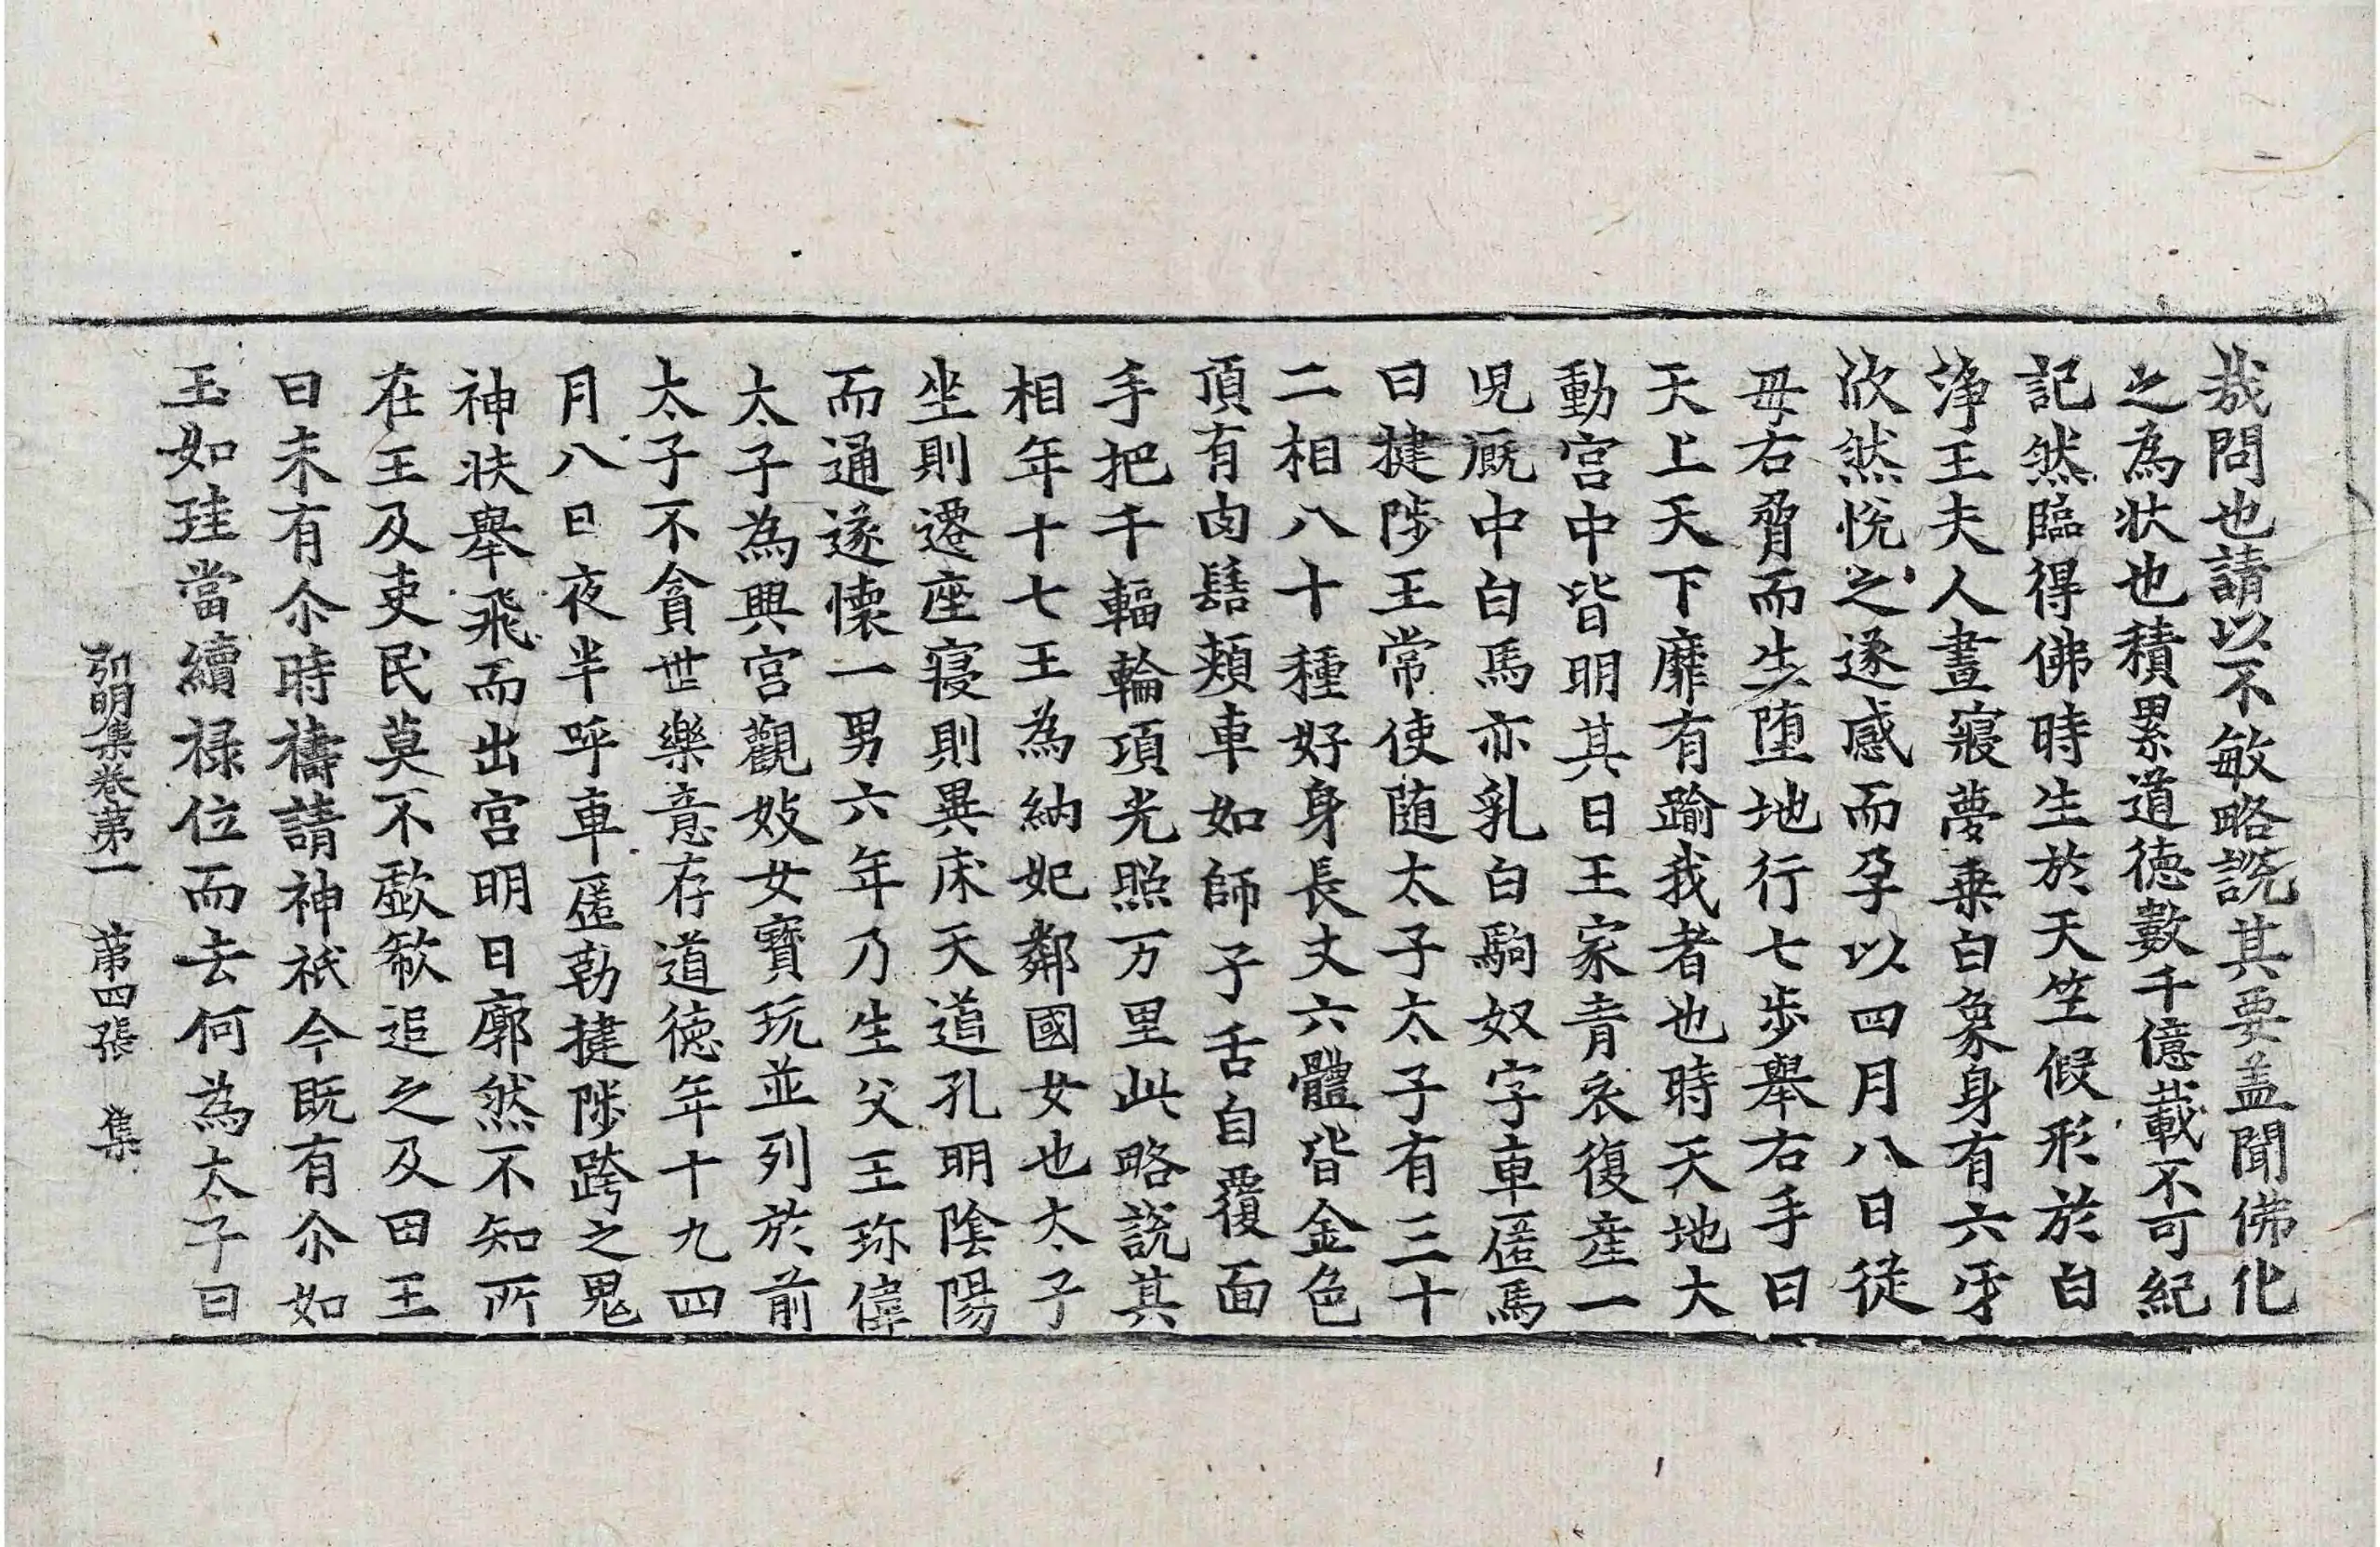 哉問也請以不敏略說其要盖聞佛化
之為狀也積累道德數千億載不可紀
記然臨得佛時生於天竺假形於白
淨王夫人晝寢夢乗白象身有六牙
欣然悅之遂感而孕以四月八日從
母右脅而生墮地行七步舉右手曰
天上天下靡有踰我者也時天地大
動宫中皆明其日王家青衣復産一
児厩中白馬亦乳白駒奴字車匿馬
曰揵陟王常使随太子太子有三十
二相八十種好身長丈六體皆金色
頂有肉髻頰車如師子舌自覆面
手把千輻輪項光照万里此略說其
相年十七王為納妃鄰國女也太子
坐則遷座寝則異床天道孔明陰陽
而通遂懐一男六年乃生父王珎偉
太子為興宫觀妓女寳玩並列於前
太子不貪世樂意存道徳年十九四
月八日夜半呼車匿勒揵陟跨之鬼
神扶舉飛而出宫明日廓然不知所
在王及吏民莫不歔欷追之及田王
曰未有尒時禱請神祇今既有尒如
玉如珪當續禄位而去何為太子曰
弘明集卷第一　第四張　集